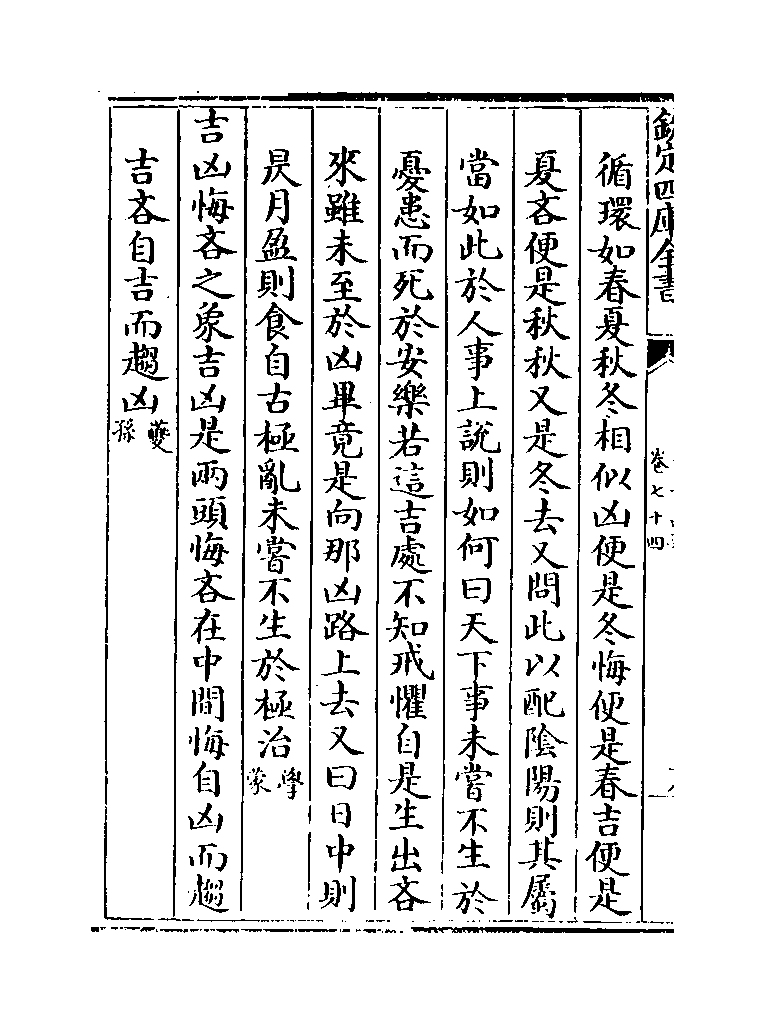 欽定四庫全書
卷七十四
循環如春夏秋冬相似凶便是冬悔便是春吉便是
夏吝便是秋秋又是冬去又問此以配陰陽則其屬
當如此於人事上說則如何曰天下事未嘗不生於
憂患而死於安樂若這吉處不知戒懼自是生出吝
來雖未至於凶畢竟是向那凶路上去又曰日中則
昃月盈則食自古極亂未嘗不生於極治學蒙
吉凶悔吝之象吉凶是兩頭悔吝在中間悔自凶而趨
吉吝自吉而趨凶夔孫